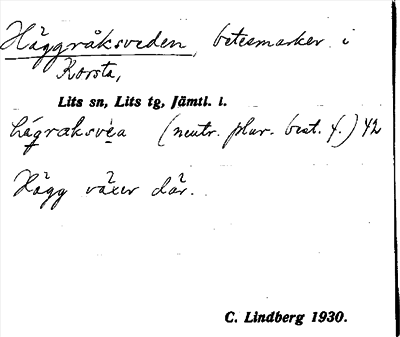 Häggråksveden, betesmarker i
Korsta,
Lits sn, Lits tg, Jämtl. l.
(neutr. plur. best. f.) 42
Hägg växer där.
C. Lindberg 1930.